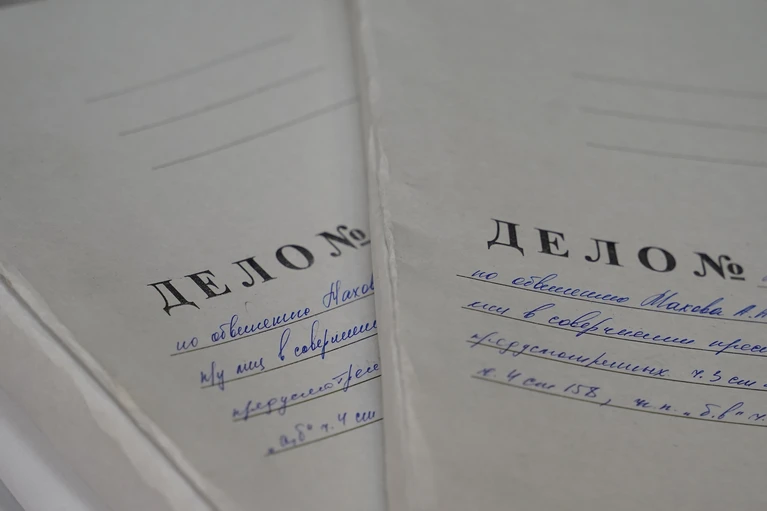 ДЕЛО №
по обвинению Махов
и/у лиц в совершении
предусмотрен
"а,б" ч. 4 ст
ДЕЛО №
по обвинению Махова А.А
лиц в совершении прес
предусмотренных ч. 3 ст
ч. 4 ст 158, п.п. "б,в" ч.